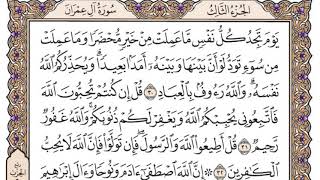 الجزء الثالث سورة آل عمران
يَوْمَ تَجِدُ كُلُّ نَفْسٍ مَّا عَمِلَتْ مِنْ خَيْرٍ مُّحْضَرًا وَمَا عَمِلَتْ
مِن سُوٓءٍ تَوَدُّ لَوْ أَنَّ بَيْنَهَا وَبَيْنَهُۥٓ أَمَدًۢا بَعِيدًا ۗ وَيُحَذِّرُكُمُ ٱللَّهُ
نَفْسَهُۥ ۗ وَٱللَّهُ رَءُوفٌۢ بِٱلْعِبَادِ ٣٠ قُلْ إِن كُنتُمْ تُحِبُّونَ ٱللَّهَ
فَٱتَّبِعُونِى يُحْبِبْكُمُ ٱللَّهُ وَيَغْفِرْ لَكُمْ ذُنُوبَكُمْ ۗ وَٱللَّهُ غَفُورٌ
رَّحِيمٌ ٣١ قُلْ أَطِيعُوا۟ ٱللَّهَ وَٱلرَّسُولَ ۖ فَإِن تَوَلَّوْا۟ فَإِنَّ ٱللَّهَ لَا يُحِبُّ
ٱلْكَٰفِرِينَ ٣٢ إِنَّ ٱللَّهَ ٱصْطَفَىٰٓ ءَادَمَ وَنُوحًا وَءَالَ إِبْرَٰهِيمَ